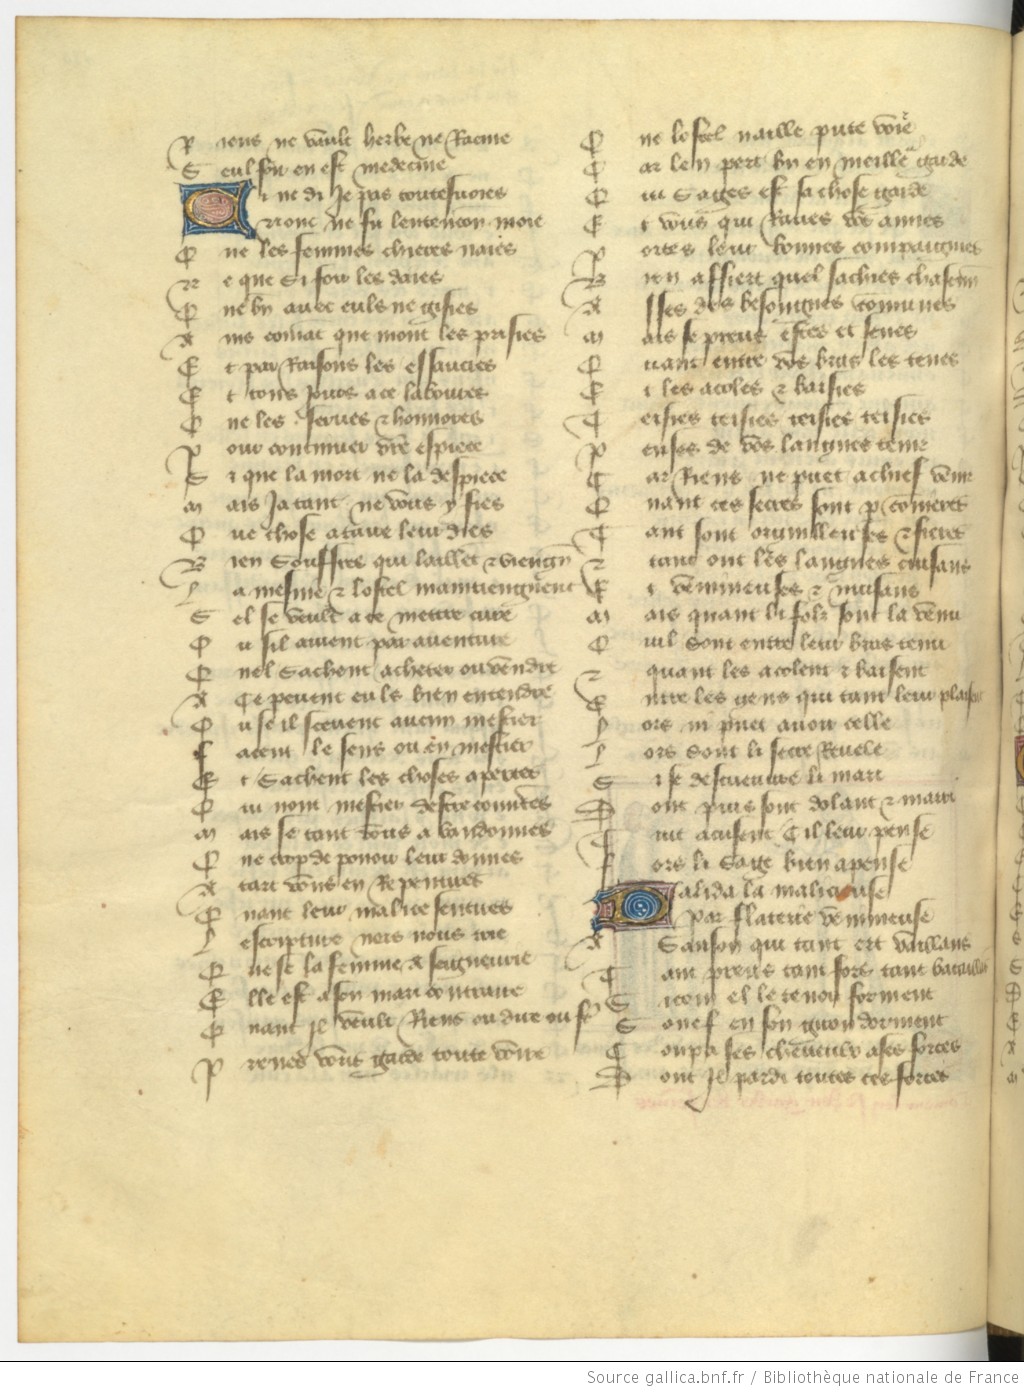 R iens ne vault herbe ne Racine
S eul fuir en est medecine
S i ne di Je pas toutesuoies
N onc ne fu lentencon moie
Q ne les femmes chieres naies
N e que Si fuir les doies
Q ne bn auec euls ne gisies
A ins comat que moult les prisies
E t par Raisons les essaucies
E t tous Jours a ce
Q ne les serues & honnores
P our continuer vre espiece
S i que la mort ne la despiece
M ais Ja tant ne vous y fies
Q ue chose a taire leur dies
B ien Souffres qui &
L a mesme & lostel
S el se veult a ce mettre cure
O u sil auient par auenture
Q nel Sachent acheter ou vendre
A Ce peuent euls bien entendre
O u se il sceuent aucun mestier
F acent le sens ou en mestier
E t Sachent les choses apertes
Q ui nont mestier destre couuertes
M ais se tant vous a bandonnes
Q ne trop de pouoir leur donnes
A tart vous en Repentires
Q nant leur malice sentires
L escripture nors nous crie
Q ue se la femme a seigneurie
E lle est a son mari contraire
Q nant Jl veult Riens ou dire ou fe
P renes vous garde toute voie
Q ne lostel naille pute voie
C ar len pert bn en meille garde
Q ui Sages est sa chose garde
E t vous qui Raues vos amies
P ortes leur bonnes compaignies
B ien affiert quel saches chascun
A sses des besongnes communes
M ais se preus estes et senes
Q uant entre vos bras les tenes
E t les acoles & baisies
T eisies teisies teisies teisies
P enses de vos langues tenir
C ar Riens ne puet a chief venir
Q nant ces secres sont
T ant sont orguilleuses & fieres
& tant ont les langues cuisans
E t venimeuses & nuisans
M ais quant li folz sont la venu
Q uil Sont entre leur bras tenu
& quant les acolent & baisent
E ntre les gens qui tant leur plaisent
L ors ni puet auoir celle
L ors Sont li secre Reuele
S i se descueuure li mari
D ont puis sont dolant & marri
ors li Sage bien apense
D alida la malicieuse
Par flaterie venimeuse
A Sanson qui tant ert vaillans
T ant preus tant fors tant bataillans
S icom el le tenoit forment
S onef en son giron dorment
C oupa ses cheueulx a ses forces
D ont Jl pardi toutes ces forces
Source gallica.bnf.fr / Bibliothèque nationale de France